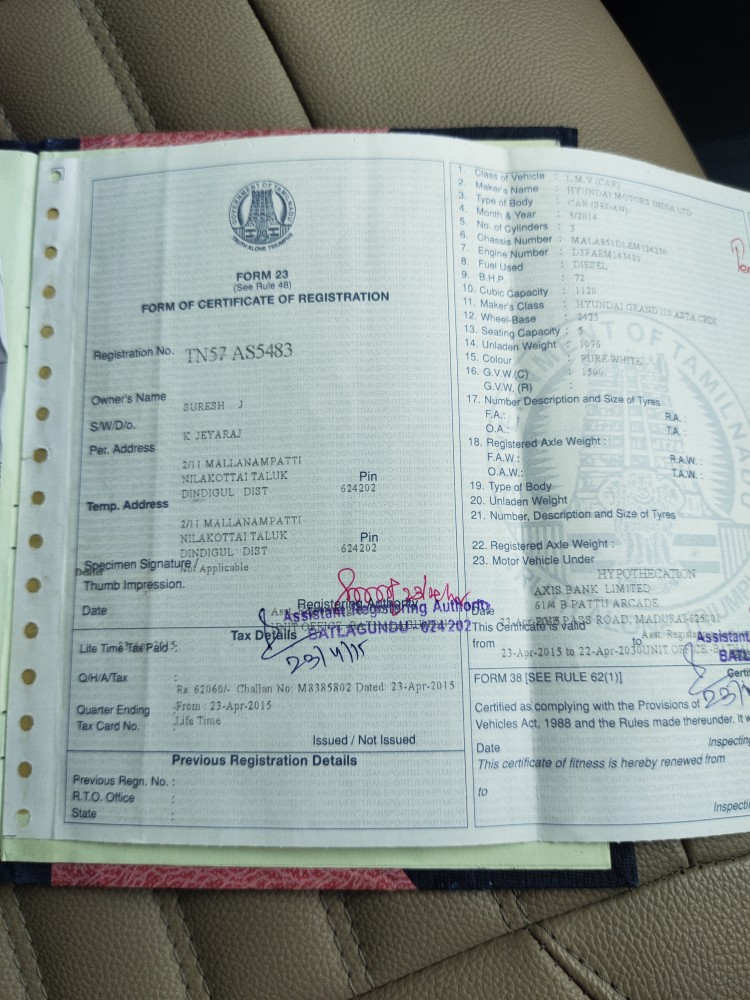 GOVERNMENT OF TAMIL NADU
TRUTH ALONE TRIUMPHS
FORM 23
(See Rule 48)
FORM OF CERTIFICATE OF REGISTRATION
Registration No. TN57 AS5483
Owner's Name SURESH J
S/W/D/o. K JEYARAJ
Per. Address
2/11 MALLANAMPATTI
NILAKOTTAI TALUK Pin
DINDIGUL DIST 624202
Temp. Address
2/11 MALLANAMPATTI
NILAKOTTAI TALUK Pin
DINDIGUL DIST 624202
Specimen Signature /
Not Applicable
Thumb Impression.
Registering Authority
Date
Assistant Registering Authority
BATLAGUNDU - 624 202
23/4/15
Tax Details
Life Time Tax Paid :
Q/H/A/Tax :
Rs. 62060/- Challan No: M8385802 Dated: 23-Apr-2015
Quarter Ending :From : 23-Apr-2015
Tax Card No. :Life Time
Issued / Not Issued
Previous Registration Details
Previous Regn. No. :
R.T.O. Office :
State :
1. Class of Vehicle : L.M.V (CAR)
2. Maker's Name : HYUNDAI MOTORS INDIA LTD
3. Type of Body : CAR (SEDAN)
4. Month & Year : /2014
5. No. of Cylinders : 3
6. Chassis Number :
7. Engine Number :
8. Fuel Used : DIESEL
9. B.H.P. : 72
10. Cubic Capacity : 1120
11. Maker's Class : HYUNDAI GRAND I10 ASTA CRDI
12. Wheel-Base : 2425
13. Seating Capacity : 5
14. Unladen Weight : 1096
15. Colour : PURE WHITE
16. G.V.W.(C) : 1500
G.V.W. (R) :
17. Number Description and Size of Tyres
F.A.: R.A. :
O.A.: T.A. :
18. Registered Axle Weight :
F.A.W. : R.A.W. :
O.A.W. : T.A.W. :
19. Type of Body
20. Unladen Weight
21. Number, Description and Size of Tyres
22. Registered Axle Weight :
23. Motor Vehicle Under
HYPOTHECATION
AXIS BANK LIMITED
61/4 B PATTU ARCADE
PASS ROAD, MADURAI-625
Date
This Certificate is valid
from 23-Apr-2015 to 22-Apr-2030
UNIT OFFICE
Assistant
FORM 38 [SEE RULE 62(1)]
Certified as complying with the Provisions of
Vehicles Act, 1988 and the Rules made thereunder. It w
Date Inspecting
This certificate of fitness is hereby renewed from
to
Inspecti